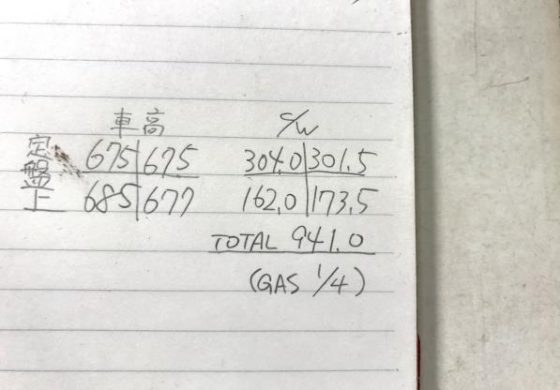 車高 C/W
定盤上
675 675 304.0 301.5
685 677 162.0 173.5
TOTAL 941.0
(GAS 1/4)